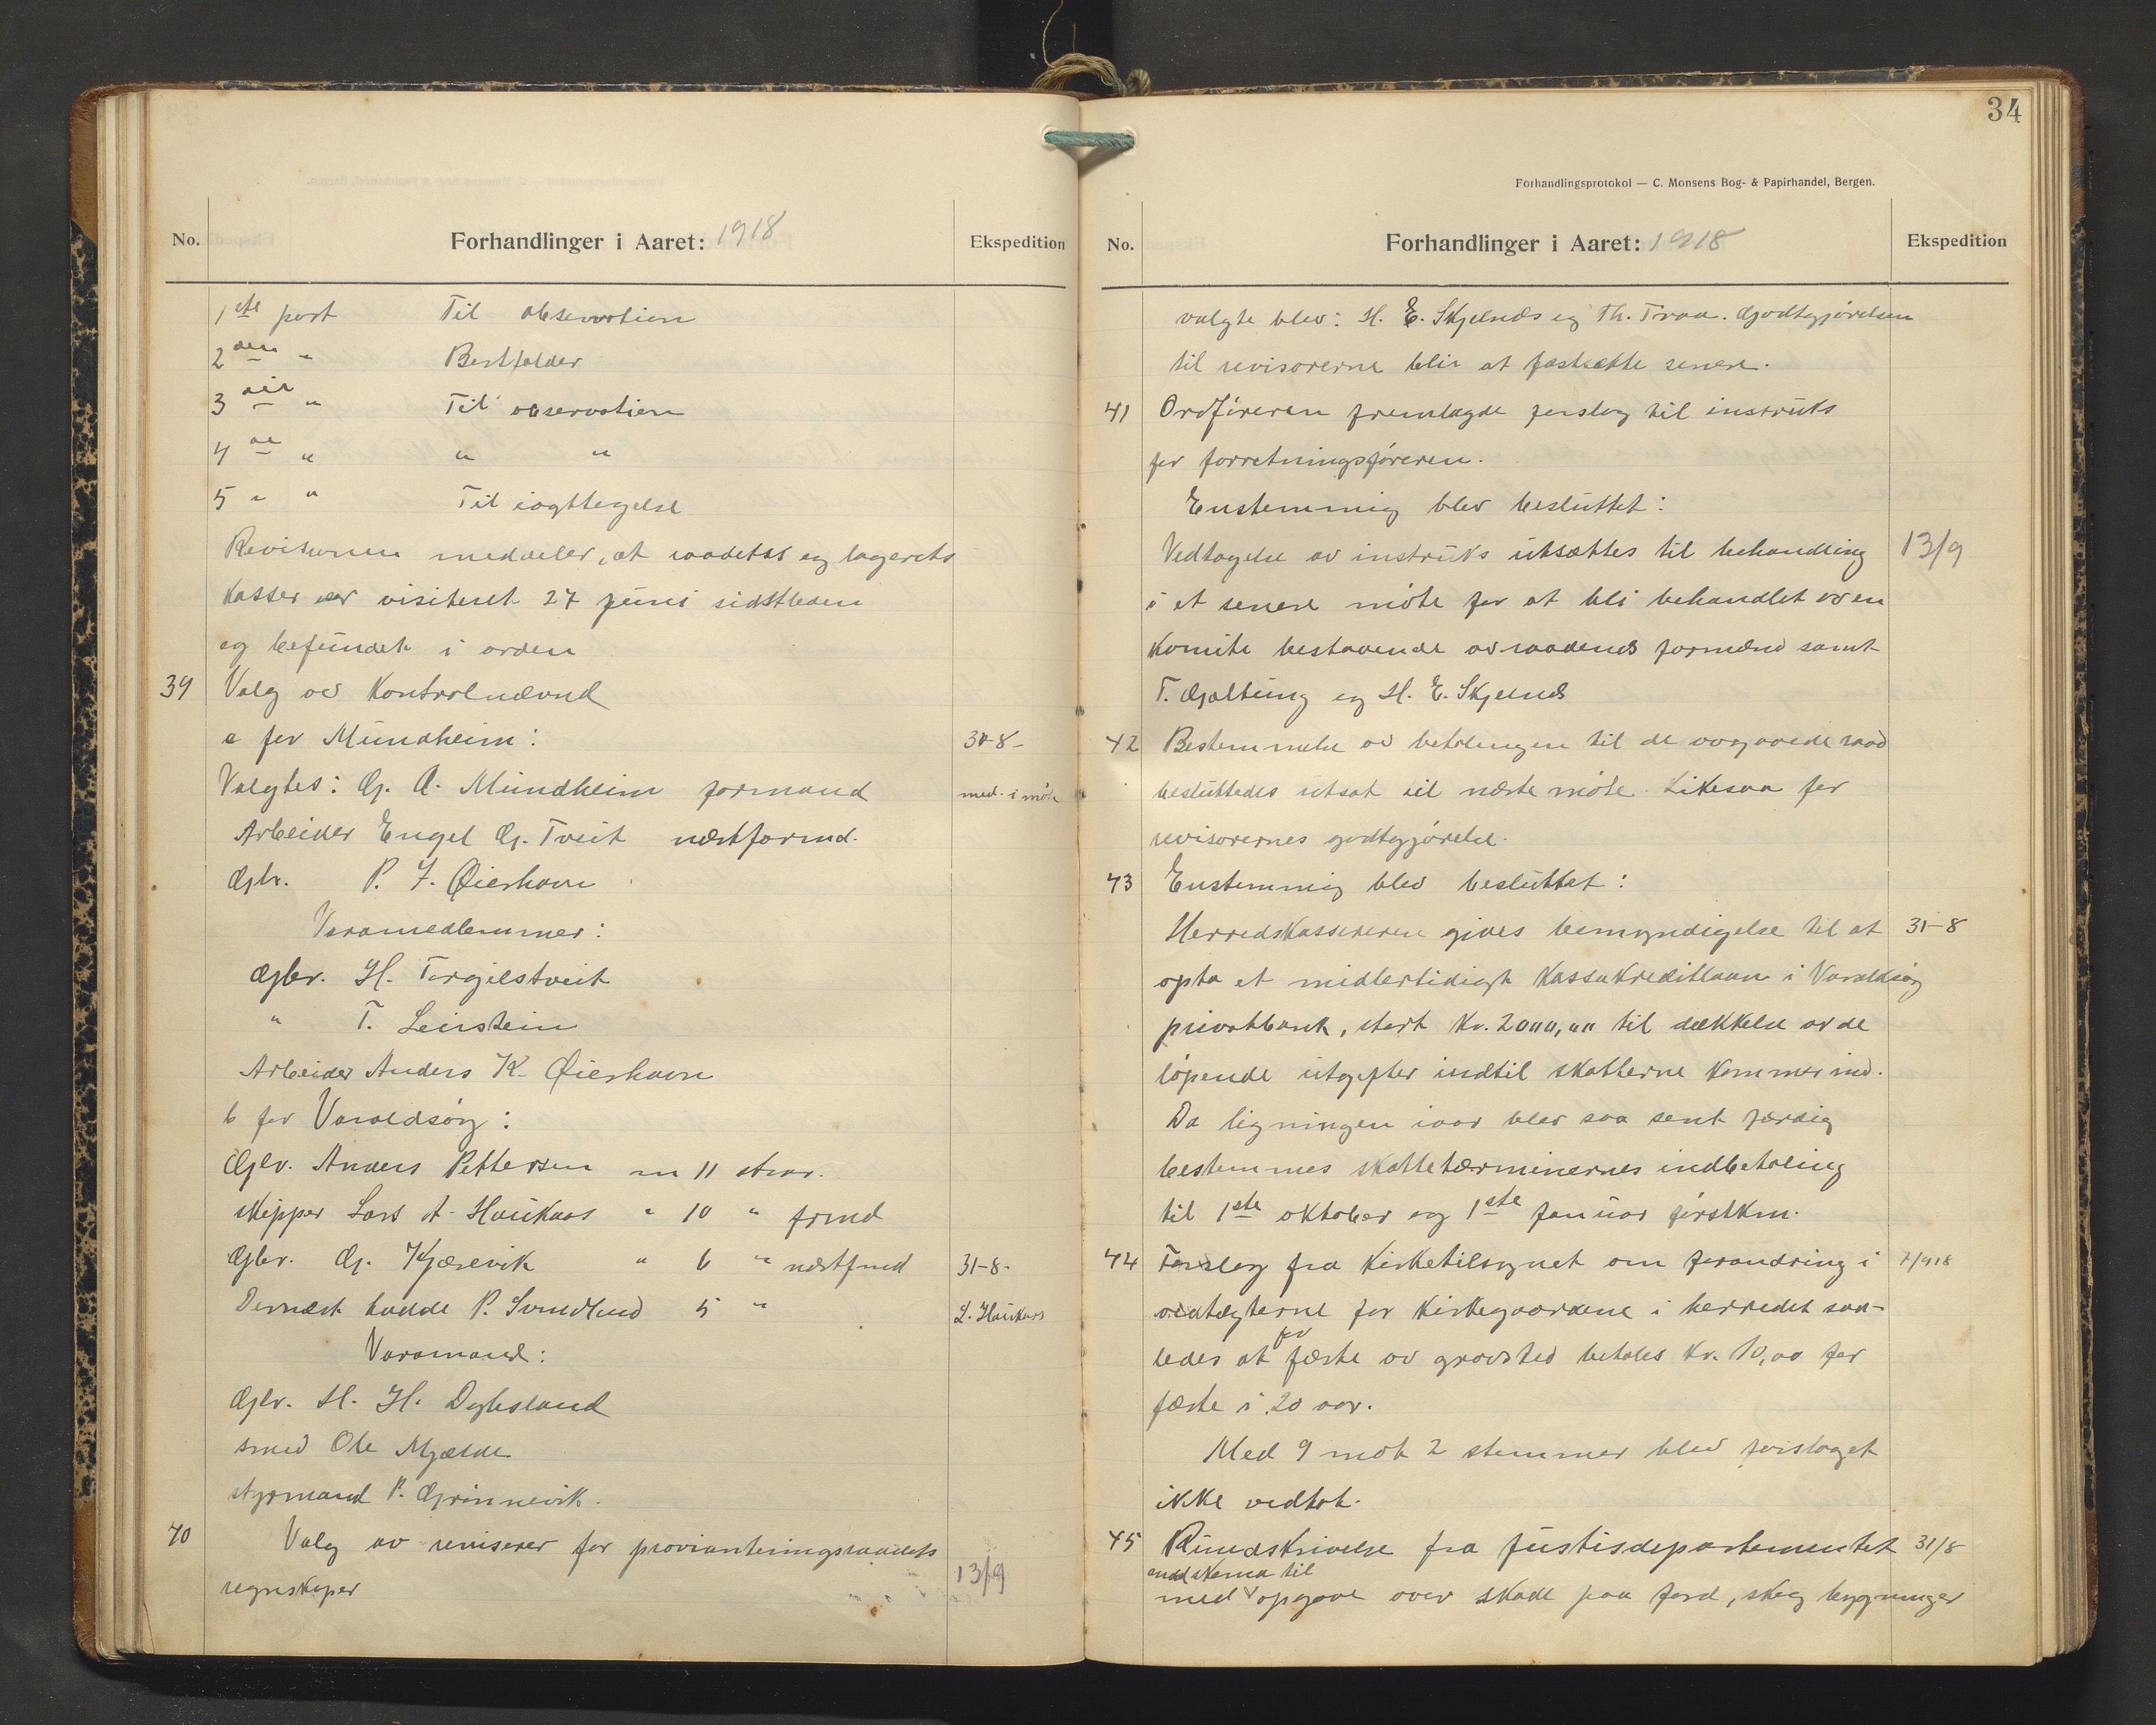 No. Forhandlinger i Aaret: 1918 Ekspedition
1ste post Til observation
2den " Bortfalder
3die " Til observation
4de " " "
5 " " Til iagttagelse
Revisionen meddeler, at raadets og lagerets
kasser er visiteret 27 juni sidstleden
og befundet i orden
39 Valg av Kontrolnævnd
a for Mundheim: 31-8-
Valgtes: G. A. Mundheim formand med. i møte
Arbeider Engel G. Tveit næstformd.
Gbr. P. J. Øierhavn
Varamedlemmer:
Gbr. H. Torgilstveit
" T. Leirstein
Arbeider Anders K. Øierhavn
b for Varaldsøy:
Gbr. Anders Pettersen m 11 stem.
Skipper Lars A. Haukaas " 10 " frmd
Gbr. G. Kjærevik " 6 " næstfmd 31-8-
Dernæst hadde P. Svendlund 5 " L. Haukaas
Varamænd:
Gbr. H. H. Dybsland
smed Ole Mjælde
styrmand P. Grønnevik.
40 Valg av revisorer for provianteringsraadets
regnskaper 13/9
34
Forhandlingsprotokol — C. Monsens Bog- & Papirhandel, Bergen.
No. Forhandlinger i Aaret: 1918 Ekspedition
valgte blev: H. E. Skjelnes og Th. Traa. Godtgjørelsen
til revisorerne blir at fastsætte senere.
41 Ordføreren fremlagde forslag til instruks
for forretningsføreren.
Enstemmig blev besluttet:
Vedtagelse av instruks utsættes til behandling 13/9
i et senere møte for at bli behandlet av en
komite bestaaende av raadenes formænd samt
T. Gjeltung og H. E. Skjelnes
42 Bestemmelse av betalingen til de avgaaede raad
besluttedes utsat til næste møte. Likesaa for
revisorernes godtgjørelse.
43 Enstemmig blev besluttet:
Herredskassereren gives bemyndigelse til at 31-8
opta et midlertidigt kassakreditlaan i Varaldsøy
privatbank, stort kr. 2000,00 til dækkelse av de
løpende utgifter indtil skatterne kommer ind.
Da ligningen iaar blev saa sent færdig
bestemmes skatteterminernes indbetaling
til 1ste oktober og 1ste januar førstkm.
44 Forslag fra Kirketilsynet om forandring i 7/918
vedtægterne for kirkegaardene i herredet saa-
ledes at for fæste av gravsted betales kr. 10,00 for
fæste i 20 aar.
Med 9 mot 2 stemmer blev forslaget
ikke vedtat.
45 Rundskrivelse fra Justisdepartementet 31/8
med skema til
med opgave over skade paa jord, skog bygninger